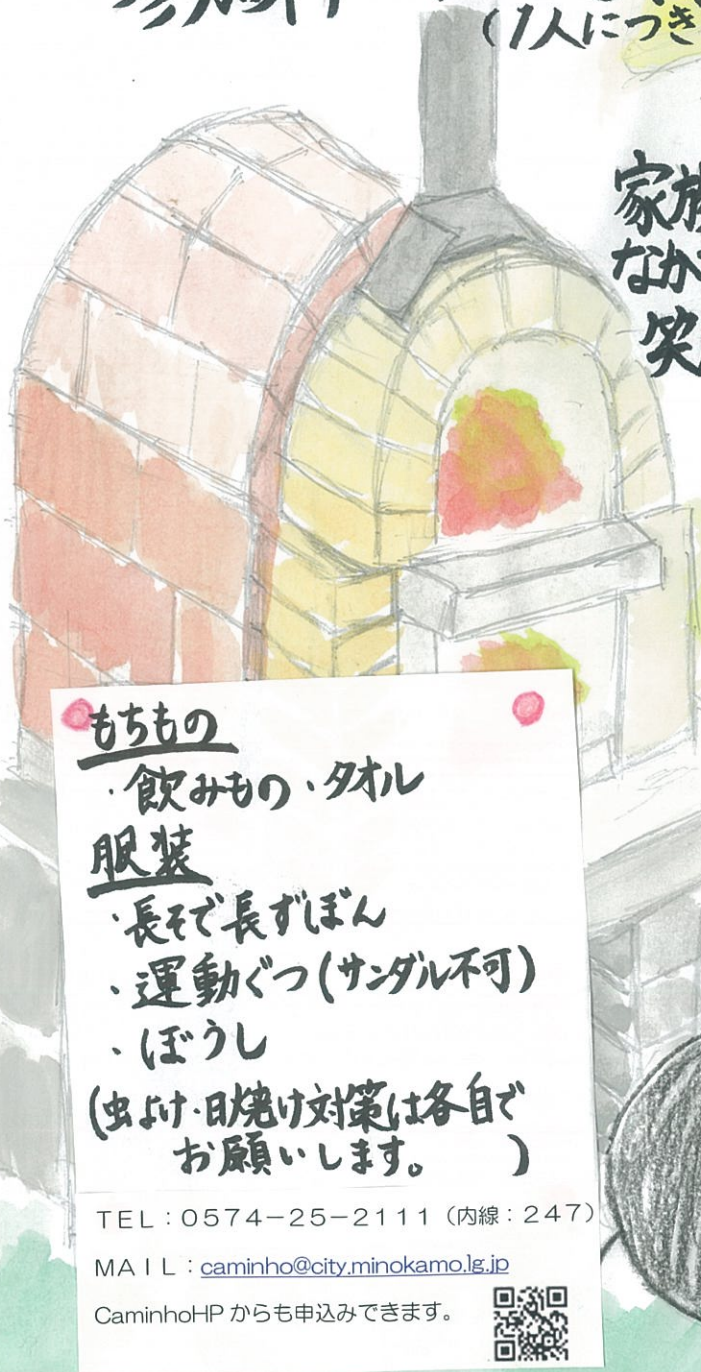 (1人につき
家族
なか
笑
もちもの
・飲みもの ・タオル
服装
・長そで長ずぼん
・運動ぐつ(サンダル不可)
・ぼうし
(虫よけ・日焼け対策は各自で
お願いします。 )
TEL:0574-25-2111 (内線:247)
MAIL:caminho@city.minokamo.lg.jp
CaminhoHP からも申込みできます。